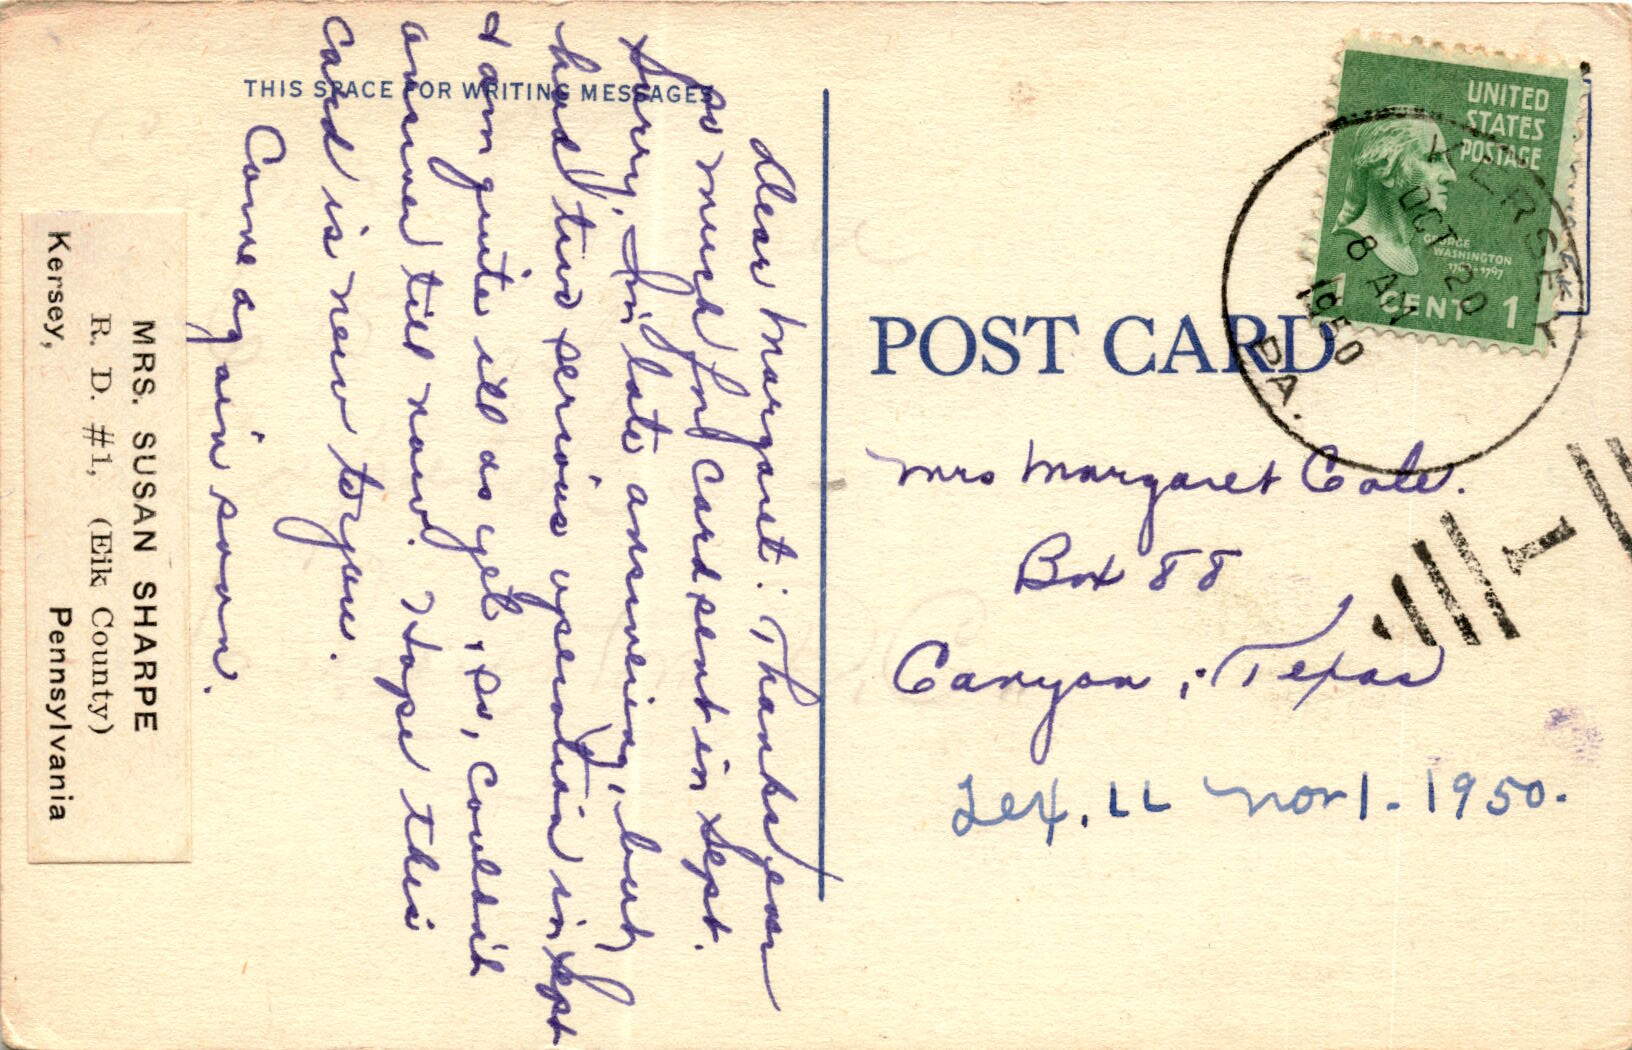 THIS SPACE FOR WRITING MESSAGES
Dear Margaret: Thanks ever
so much for card sent in Sept.
Sorry, I'm late answering, but
had two serious operation in Sept
& am quite ill as yet, so, couldn't
answer till now. Hope this
card is new to you.
Come again soon.
MRS. SUSAN SHARPE
R. D. #1, (Elk County)
Kersey, Pennsylvania
POST CARD
UNITED
STATES
POSTAGE
GEORGE
WASHINGTON
1 CENT 1
KERSEY
OCT 20
8 AM
1950
PA.
Mrs Margaret Cole.
Box 88
Canyon, Texas
Nov 1-1950.